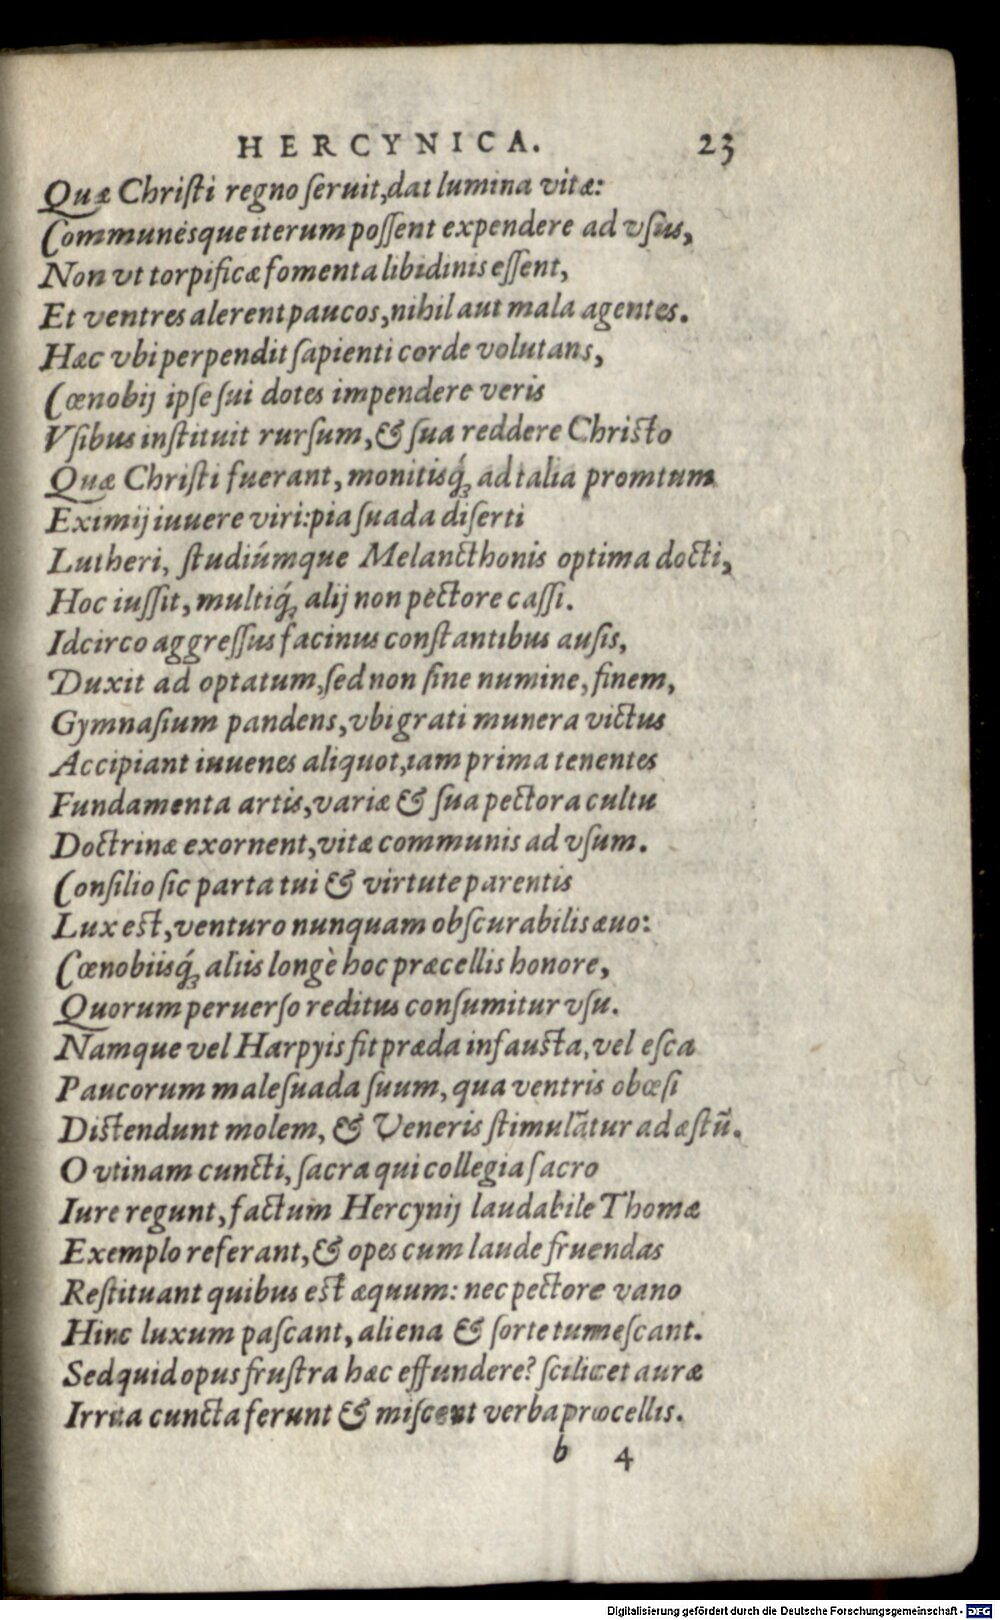 HERCYNICA. 23
Quæ Christi regno seruit, dat lumina vitæ:
Communésque iterum possent expendere ad vsus,
Non vt torpificæ fomenta libidinis essent,
Et ventres alerent paucos, nihil aut mala agentes.
Hæc vbi perpendit sapienti corde volutans,
Cœnobij ipse sui dotes impendere veris
Vsibus instituit rursum, & sua reddere Christo
Quæ Christi fuerant, monitisq́; ad talia promtum
Eximij iuuere viri: pia suada diserti
Lutheri, studiúmque Melancthonis optima docti,
Hoc iussit, multiq́; alij non pectore cassi.
Idcirco aggressus facinus constantibus ausis,
Duxit ad optatum, sed non sine numine, finem,
Gymnasium pandens, vbi grati munera victus
Accipiant iuuenes aliquot, iam prima tenentes
Fundamenta artis, variæ & sua pectora cultu
Doctrinæ exornent, vitæ communis ad vsum.
Consilio sic parta tui & virtute parentis
Lux est, venturo nunquam obscurabilis æuo:
Cœnobiisq́; aliis longè hoc præcellis honore,
Quorum peruerso reditus consumitur vsu.
Namque vel Harpyis fit præda infausta, vel esca
Paucorum malesuada suum, qua ventris obœsi
Distendunt molem, & Veneris stimulātur ad æstū.
O vtinam cuncti, sacra qui collegia sacro
Iure regunt, factum Hercynij laudabile Thomæ
Exemplo referant, & opes cum laude fruendas
Restituant quibus est æquum: nec pectore vano
Hinc luxum pascant, aliena & sorte tumescant.
Sed quid opus frustra hæc effundere? scilicet auræ
Irrita cuncta ferunt & miscent verba procellis.
b 4
Digitalisierung gefördert durch die Deutsche Forschungsgemeinschaft - DFG